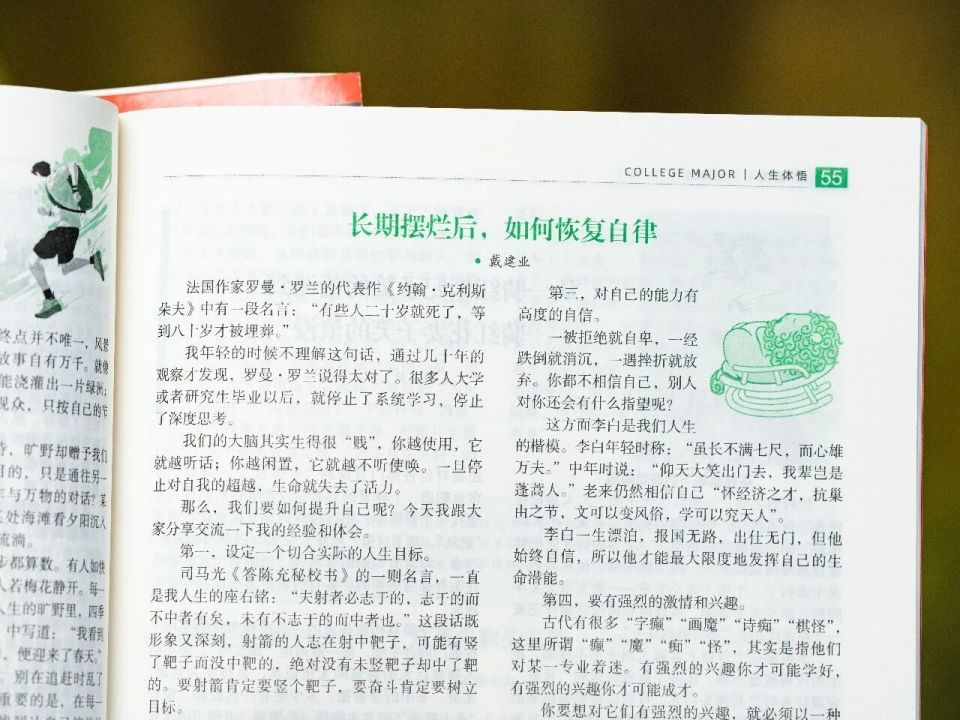 终点并不唯一，风景
故事自有万千。就像
能浇灌出一片绿洲；
观众，只按自己的节
旷野却赠予我们
目的，只是通往另一
与万物的对话？某
某处海滩看夕阳沉入
流淌。
步都算数。有人如快
人若梅花静开。每一
人生的旷野里，四季
中写道：“我看到
便迎来了春天。”
别在追赶时乱了
重要的是，在每一
COLLEGE MAJOR | 人生体悟 55
长期摆烂后，如何恢复自律
• 戴建业
法国作家罗曼·罗兰的代表作《约翰·克利斯
朵夫》中有一段名言：“有些人二十岁就死了，等
到八十岁才被埋葬。”
我年轻的时候不理解这句话，通过几十年的
观察才发现，罗曼·罗兰说得太对了。很多人大学
或者研究生毕业以后，就停止了系统学习，停止
了深度思考。
我们的大脑其实生得很“贱”，你越使用，它
就越听话；你越闲置，它就越不听使唤。一旦停
止对自我的超越，生命就失去了活力。
那么，我们要如何提升自己呢？今天我跟大
家分享交流一下我的经验和体会。
第一，设定一个切合实际的人生目标。
司马光《答陈充秘校书》的一则名言，一直
是我人生的座右铭：“夫射者必志于的，志于的而
不中者有矣，未有不志于的而中者也。”这段话既
形象又深刻，射箭的人志在射中靶子，可能有竖
了靶子而没中靶的，绝对没有未竖靶子却中了靶
的。要射箭肯定要竖个靶子，要奋斗肯定要树立
目标。
第三，对自己的能力有
高度的自信。
一被拒绝就自卑，一经
跌倒就消沉，一遇挫折就放
弃。你都不相信自己，别人
对你还会有什么指望呢？
这方面李白是我们人生
的楷模。李白年轻时称：“虽长不满七尺，而心雄
万夫。”中年时说：“仰天大笑出门去，我辈岂是
蓬蒿人。”老来仍然相信自己“怀经济之才，抗巢
由之节，文可以变风俗，学可以究天人”。
李白一生漂泊，报国无路，出仕无门，但他
始终自信，所以他才能最大限度地发挥自己的生
命潜能。
第四，要有强烈的激情和兴趣。
古代有很多“字癫”“画魔”“诗痴”“棋怪”，
这里所谓“癫”“魔”“痴”“怪”，其实是指他们
对某一专业着迷。有强烈的兴趣你才可能学好，
有强烈的兴趣你才可能成才。
你要想对它们有强烈的兴趣，就必须以一种